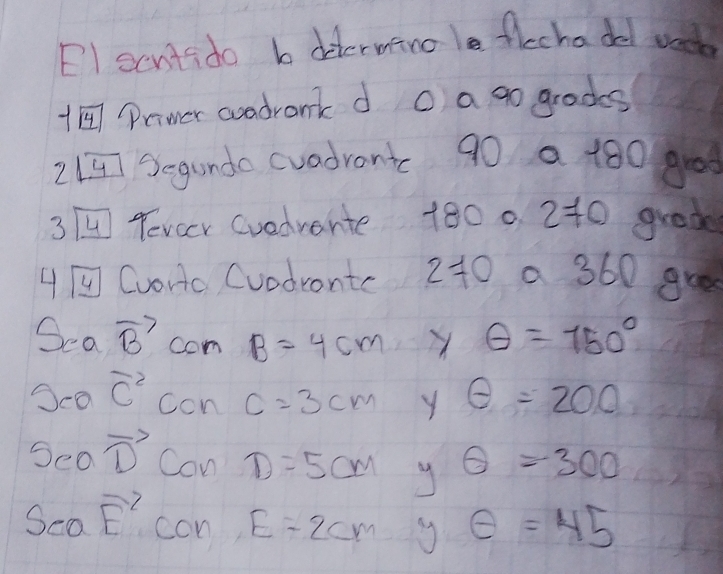 El sentido lo determina la flecha del vector
1 4 Primer cuadrante d 0 a 90 grados
2 4 Segundo cuadrante 90 a 180 grad
3 4 Tercer Cuadrante 180 a 270 grado
4 4 Cuarto Cuadrante 270 a 360 grad
Sea B⃗ con B = 4 cm y θ = 150°
Sea C⃗ con C = 3 cm y θ = 200
Sea D⃗ Con D = 5 cm y θ = 300
Sea E⃗ con E = 2 cm y θ = 45